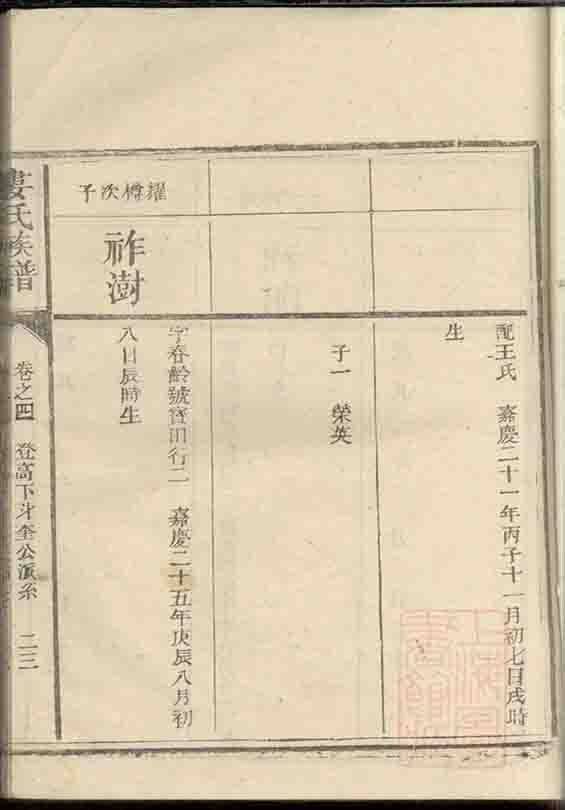 配王氏 嘉慶二十一年丙子十一月初七日戌時
生
子一 榮英
耀樽次子
祚澍
字春齡號寶田行二 嘉慶二十五年庚辰八月初
八日辰時生
婁氏族譜
卷之四 登高下斗奎公派系 二三